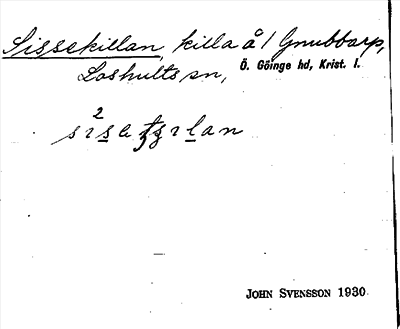 Sissekillan, killa å / Gnubbarp,
Loshults sn, Ö. Göinge hd, Krist. l.
JOHN SVENSSON 1930.